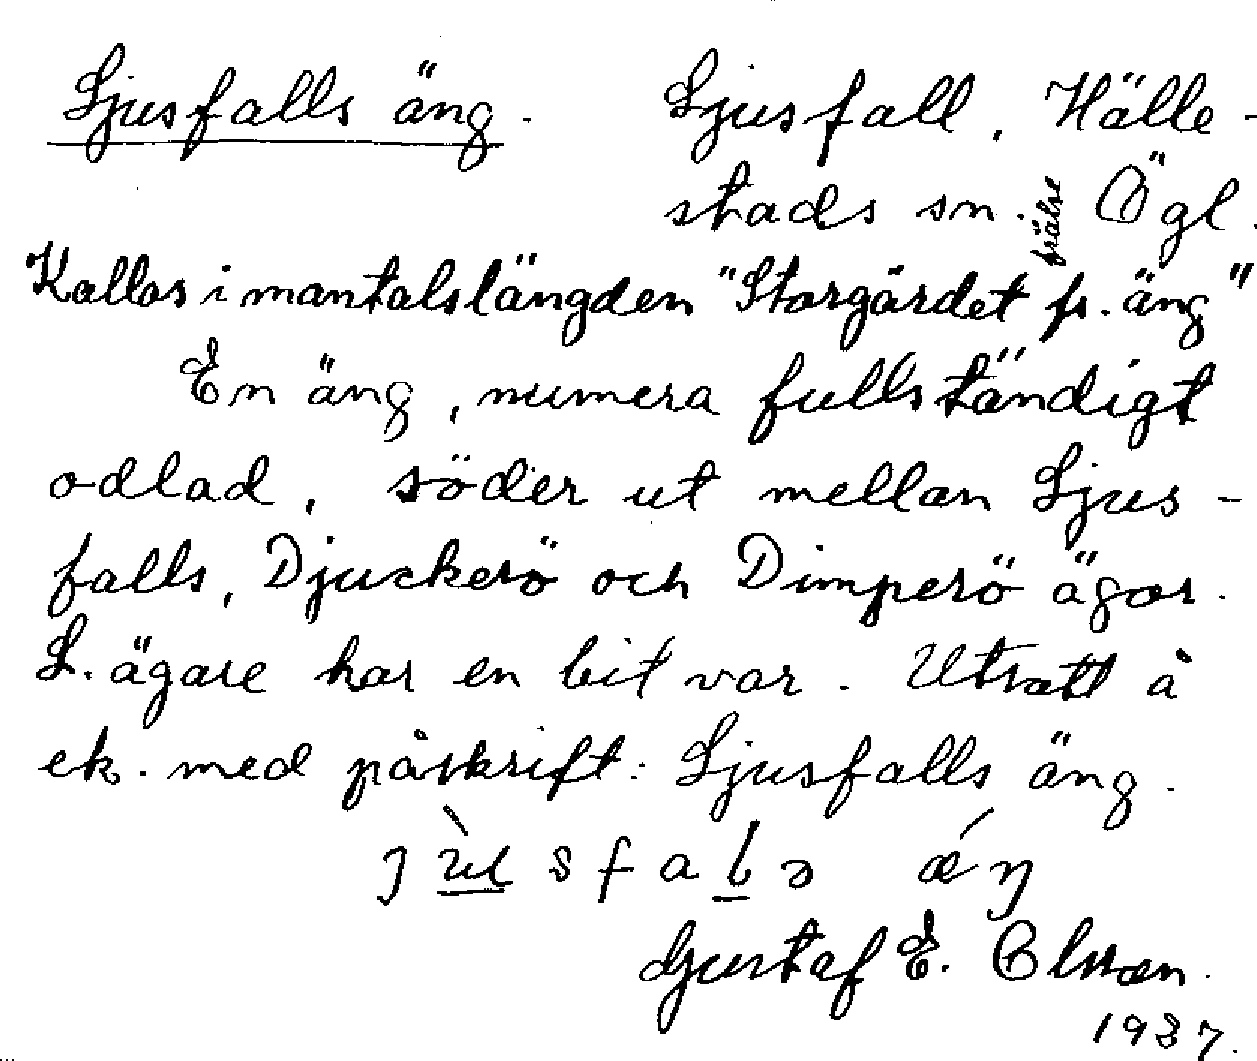 Ljusfalls äng. Ljusfall, Hälle-
stads sn. Ögl.
frälse
Kallas i mantalslängden "Storgärdet fr. äng"
En äng, numera fullständigt
odlad, söder ut mellan Ljus-
falls, Djuckerö och Dimperö ägor.
L. ägare har en bit var. Utsatt å
ek. med påskrift: Ljusfalls äng.
Gustaf E. Olsson.
1937.